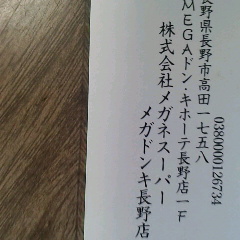 長野県長野市高田一七五八
MEGAドン・キホーテ長野店一F
株式会社メガネスーパー
メガドンキ長野店
03800000126734